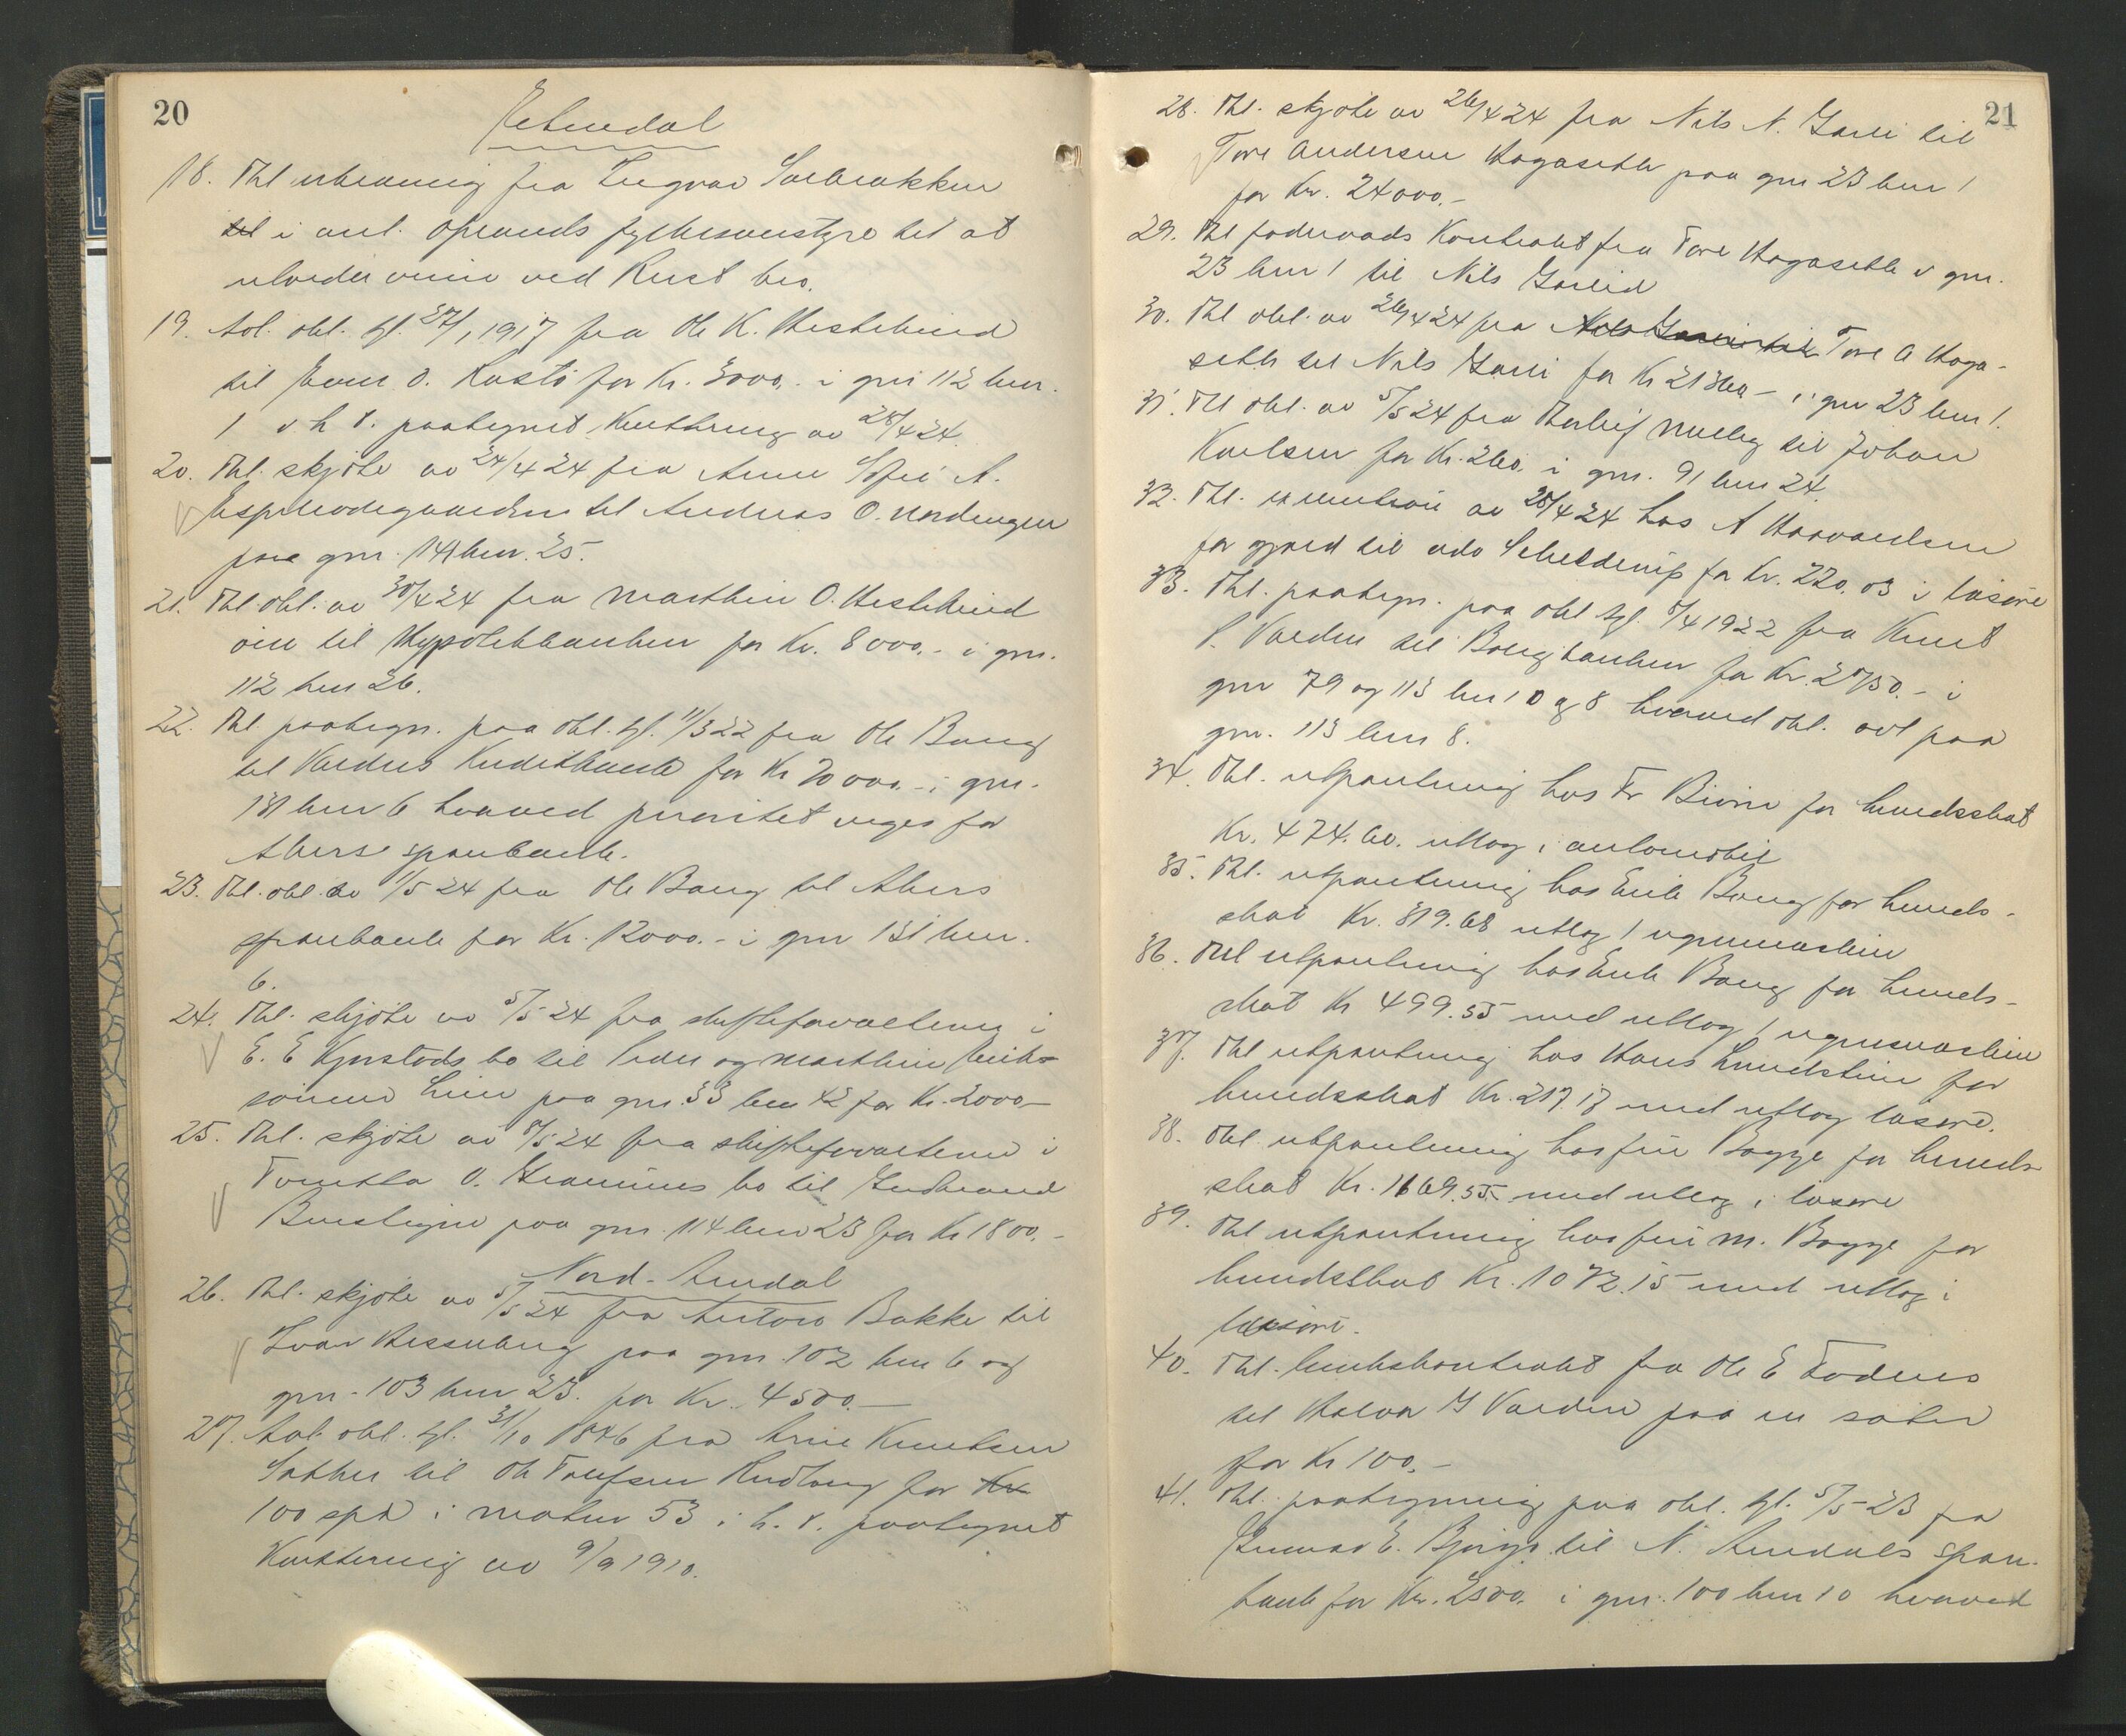 20
Etnedal
18. Thl erklæring fra Ingvar Sørbrøkken
til i anl. Oplands fylkesvenstyre til at
utvide veien ved Rust bro.
19. Avl. obl. tgl. 27/1 1917 fra Ole K. Hestekind
til Even O. Kastö for Kr. 3000.- i gnr 112 bnr.
1 v. h. t. paategnet kvittering av 28/4 24.
20. Thl. skjöte av 24/4 24 fra Anne Sofie A.
Espelrodegaarden til Andreas O. Nordengen
paa gnr. 141 bnr. 25.
21. Thl obl. av 30/4 24 fra Marthin O. Hestekind
öien til Hypotekbanken for Kr. 8000.- i gnr.
112 bnr 26.
22. Thl. paategn. paa obl. tgl. 11/3 22 fra Ole Bang
til Valdres Kreditbank for Kr 20000.- i gnr.
131 bnr 6 hvorved prioritet viges for
Akers sparebank.
23. Thl. obl. av 1/5 24 fra Ole Bang til Akers
sparebank for Kr. 12000.- i gnr 131 bnr.
6.
24. Thl. skjöte av 5/5 24 fra skifteforvalteren i
E. E Kjerstads bo til Peder og Marthin Erik-
sönner Lien paa gnr. 33 bnr 42 for Kr. 2000-
25. Thl. skjöte av 5/5 24 fra skifteforvalteren i
Tomkla O. Gramines bo til Gudbrand
Buslien paa gnr. 114 bnr 23 for Kr 1800.-
Nord-Aurdal
26. Thl. skjöte av 5/5 24 fra Anton Bakke til
Ivar Ressuberg paa gnr. 102 bnr 6 og
gnr. 103 bnr 23. for Kr. 4500.-
27. Avl. obl. tgl. 31/10 1846 fra Arne Knutsen
Sæther til Ole Tollefsen Rudlang for Kr
100 spd i matnr 53 i h. t. paategnet
Kvittering av 9/9 1910.
21
28. Thl. skjöte av 26/4 24 fra Nils N. Garli til
Tore Andersen Hagaseth paa gnr 23 bnr 1
for Kr. 24000.-
29. Thl föderaads Kontrakt fra Tore Hagaseth i gnr.
23 bnr 1 til Nils Garlid
30. Thl obl. av 26/4 24 fra Nils Garli til Tore A Haga-
seth til Nils Garli for Kr 21360 - i gnr 23 bnr 1.
31. Thl obl. av 5/5 24 fra Thorleif Moeleg til Johan
Karlsen for Kr. 260. i gnr. 91 bnr 24.
32. Thl. exekution av 28/4 24 hos A Haavardsen
for gjæld til adv Schelderup for Kr. 220.03 i lösöre
33. Thl. paategn. paa obl tgl. 5/4 1922 fra Knut
P. Varden til Boligbanken for Kr. 2750.- i
gnr 79 og 113 bnr 10 og 8 hvorved obl. avl paa
gnr. 113 bnr 8.
34. Thl. utpantning hos Fr Bioni for kundsskat
Kr. 474.60. utlæg i automobil
35. Thl. utpantning hos Erik Bang for kunds-
skat Kr. 819.68 utlæg 1 regnemaskin
36. Thl utpantning hos Erik Bang for kunds-
skat Kr 499.55 med utlæg 1 regnemaskin
37. Thl utpantning hos Hans Lundstein for
kundsskat Kr. 217.17 med utlæg lösöre.
38. Thl. utpantning hos fru Bagge for kunds-
skat Kr. 1669.55. med utlæg i lösöre
39. Thl utpantning hos fru M. Bagge for
kundsskat Kr. 1072.15 med utlæg i
lösöre.
40. Thl. leiekontrakt fra Ole E Fodnes
til Halvor G Varden paa en sæter
for Kr 100.-
41. Thl. paategning paa obl. tgl. 5/5-23 fra
Gunnar E. Bjørge til N. Aurdals spare-
bank for Kr. 2500. i gnr. 100 bnr 10 hvorved